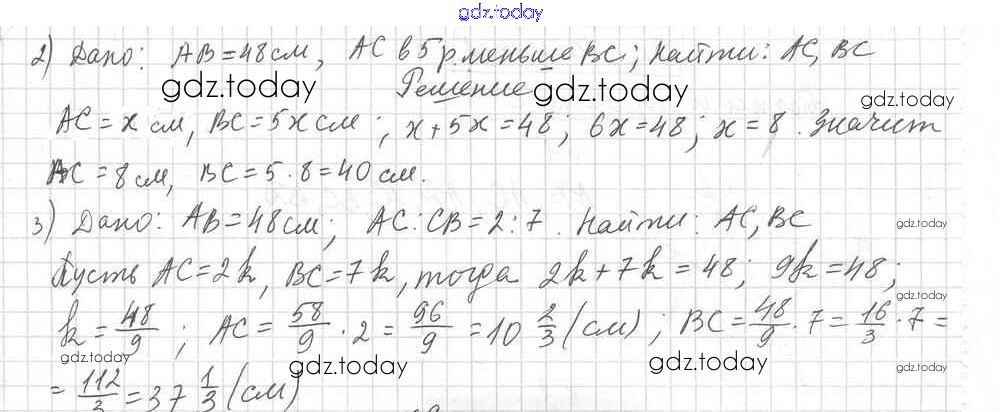 gdz.today
2) Дано: AB=48см, AC в 5 р. меньше BC; Найти: AC, BC
gdz.today
Решение
gdz.today
gdz.today
AC = x см, BC = 5x см; x + 5x = 48; 6x = 48; x = 8. Значит
AC = 8 см, BC = 5 · 8 = 40 см.
3) Дано: AB = 48 см; AC : CB = 2 : 7. Найти: AC, BC
gdz.today
Пусть AC = 2k, BC = 7k, тогда 2k + 7k = 48; 9k = 48;
gdz.today
k = 48/9; AC = 58/9 · 2 = 96/9 = 10 2/3 (см); BC = 48/9 · 7 = 16/3 · 7 =
gdz.today
gdz.today
gdz.today
gdz.today
= 112/3 = 37 1/3 (см)